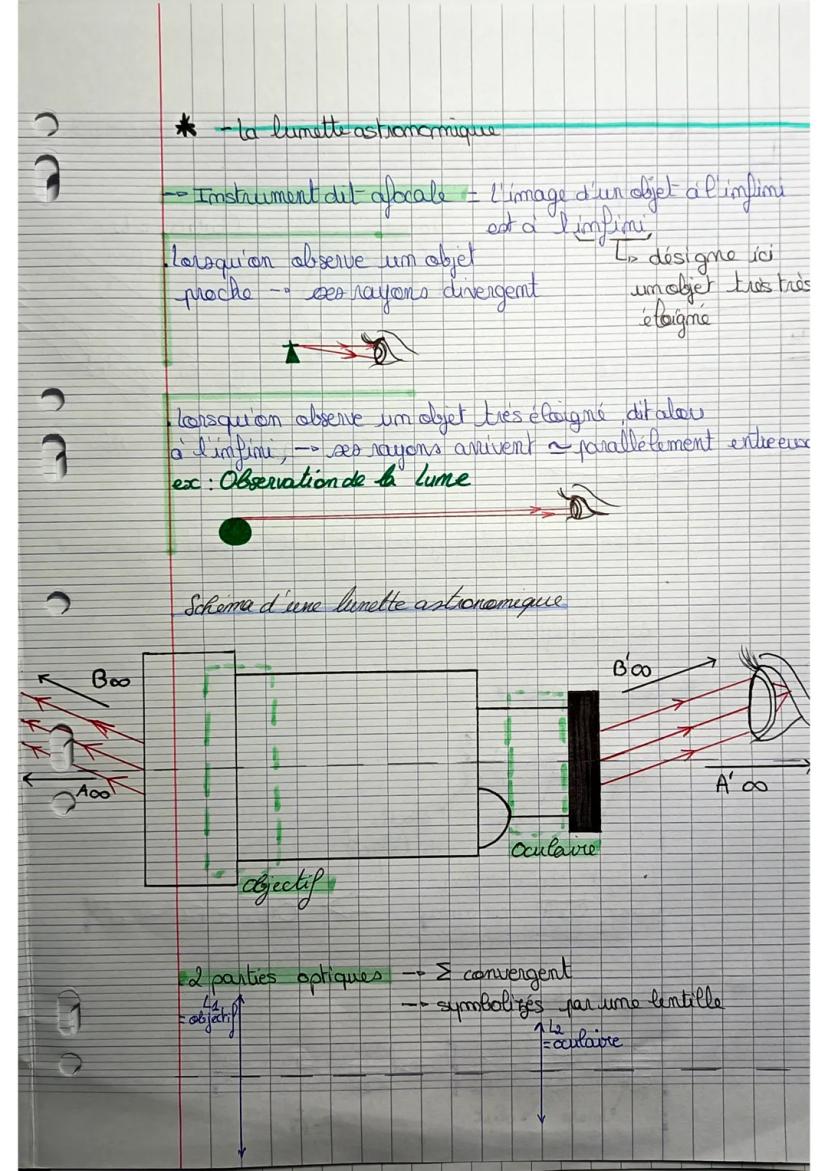 * - La lunette astronomique
→ Instrument dit afocale = l'image d'un objet à l'infini
est à l'infini
↳ désigne ici
un objet très très
éloigné
Lorsqu'on observe un objet
proche → ses rayons divergent
Lorsqu'on observe un objet très éloigné, dit alou
à l'infini, → ses rayons arrivent ≃ parallèlement entre eux
ex : Observation de la Lune
Schéma d'une lunette astronomique
B∞
B'∞
A∞
A'∞
oculaire
objectif
2 parties optiques → Σ convergent
→ symbolizés par une lentille
L1
= objectif
L2
= oculaire